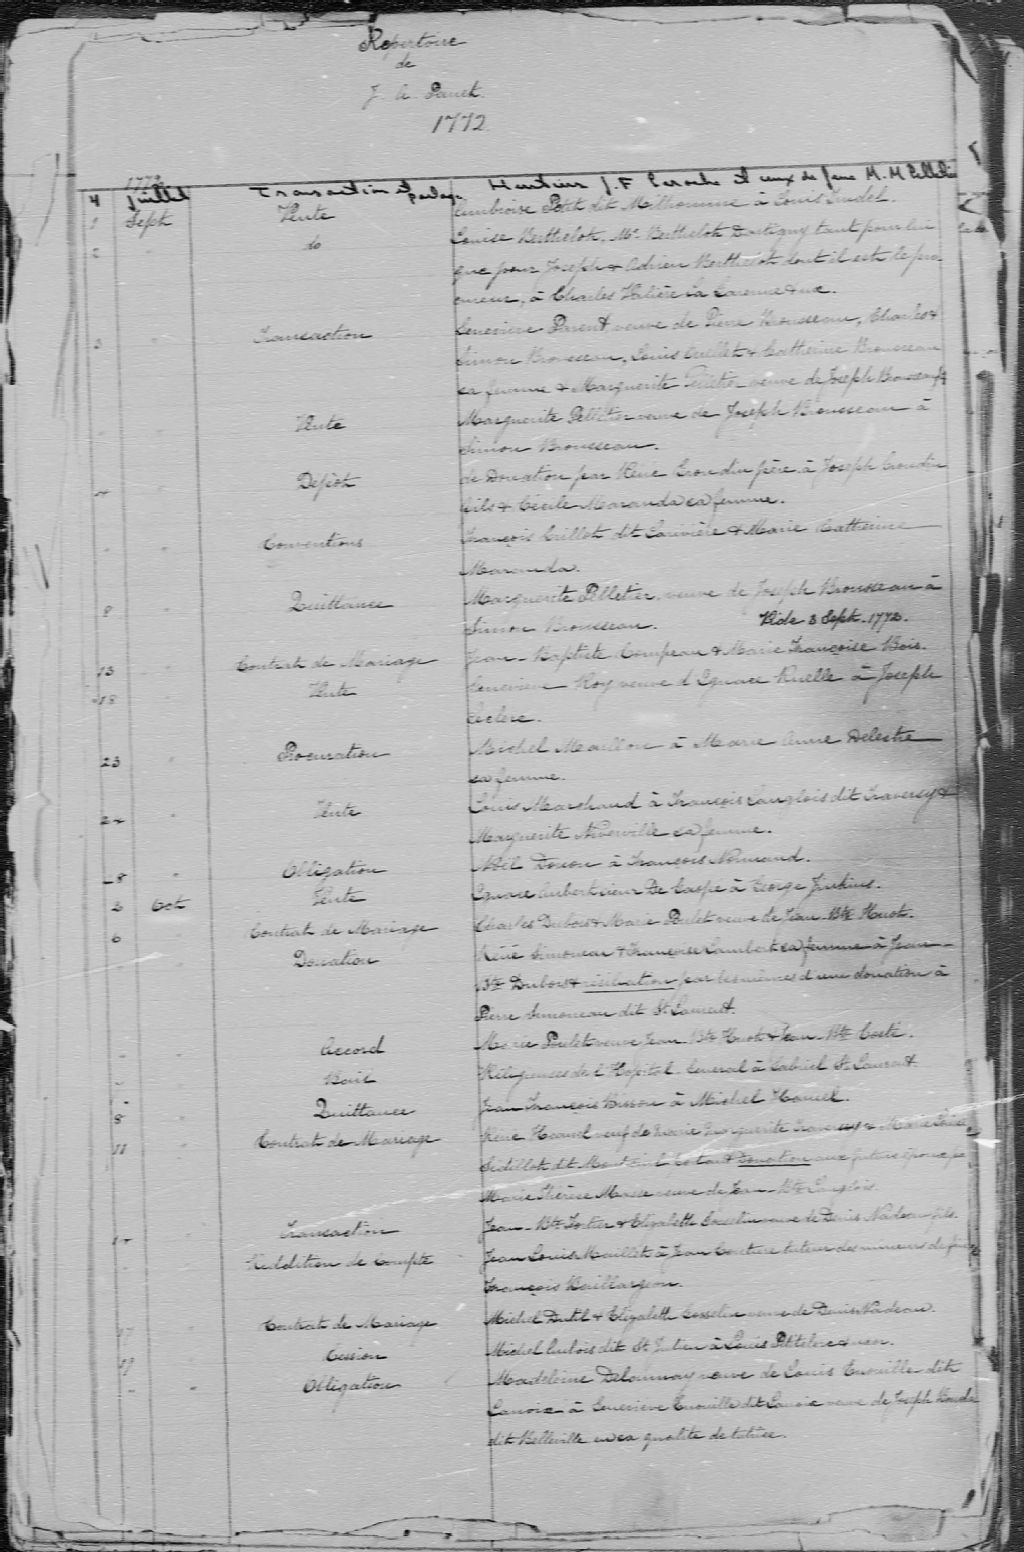 Repertoire
de
J. A. Panet.
1772
1772
4 juillet Transaction et partage Heritiers J. F Laroche et ceux de feue M. M Pelletier
1 Sept Vente Ambroise Petit dit Milhomme à Louis
2 " do Louise Berthelot, Mr. Berthelot Dartigny tant pour lui
que pour Joseph & Adrien Berthelot dont il est le pro
cureur, à Charles Valière La Garenne & ux.
3 " Transaction Genevieve Parent veuve de Pierre Brousseau, Charles &
Simon Brousseau, Louis Ouellet & Catherine Brousseau
sa femme & Marguerite Pelletier veuve de Joseph Brousseau
" " Vente Marguerite Pelletier veuve de Joseph Brousseau à
Simon Brousseau.
4 " Dépôt de Donation par René Grondin père à Joseph Grondin
fils & Cécile Maranda sa femme.
" " Conventions François Grillot dit Larivière & Marie Catherine
Maranda.
8 " Quittance Marguerite Pelletier, veuve de Joseph Brousseau à
Simon Brousseau. Vide 3 Sept. 1772.
13 " Contrat de Mariage Jean-Baptiste Compeau & Marie Françoise Bois.
18 " Vente Genevieve Roy veuve d'Ignace Ruelle à Joseph
Leclerc.
23 " Procuration Michel Maillou à Marie Anne Delestre
sa femme.
24 " Vente Louis Marchand à François Langlois dit Traversy &
Marguerite Niverville sa femme.
28 " Obligation Noël à François Normand.
2 Oct Vente Ignace Aubert sieur De Gaspé à George Jenkins.
6 " Contrat de Mariage Charles Dubois & Marie Poulet veuve de Jean-Bte Huot.
Donation René Simoneau & Françoise Lambert sa femme à Jean-
Bte Dubois & résiliation par les mêmes d'une donation à
Pierre Simoneau dit St Laurent.
" " Accord Marie Poulet veuve Jean Bte Huot & Jean-Bte Costé.
" " Bail Religieuses de l'Hopital-General à Gabriel St. Laurent.
8 " Quittance Jean François Bisson à Michel Hamel.
11 " Contrat de Mariage René Hamel veuf de Marie Marguerite Traversy & Marie
dit portant Donation aux futurs époux par
Marie Thérèse Masse veuve de Jean-Bte Langlois.
14 " Transaction Jean-Bte Fortier & Elizabeth Gosselin veuve de Denis Nadeau fils.
" " Reddition de Compte Jean Louis Maillet à Jean Couture tuteur des mineurs de feu
François Baillargeon.
17 " Contrat de Mariage Michel Dutil & Elizabeth Gosselin veuve de Denis Nadeau.
19 " Cession Michel dit St Julien à Louis Petitclerc & uxor.
" " Obligation Madeleine Delaunay veuve de Louis Enouille dit
Lanoix à Genevieve Enouille dit Lanoix veuve de Joseph
dit Belleville en sa qualité de tutrice.